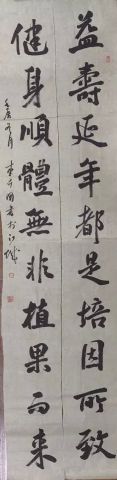 益壽延年都是培因所致
健身順體無非植果而來